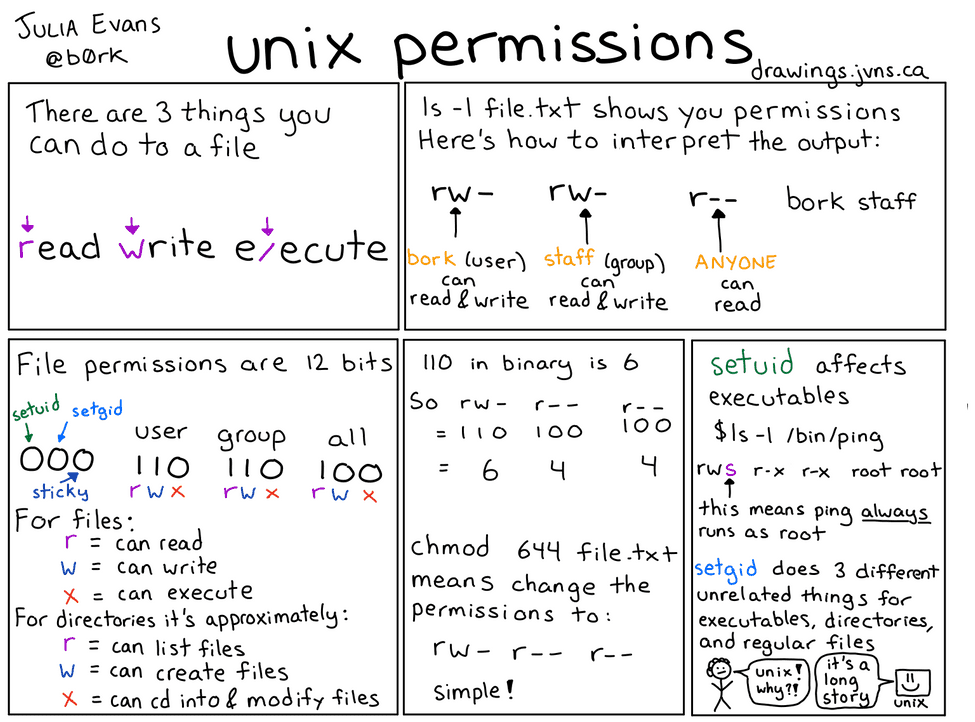 JULIA EVANS
@b0rk
unix permissions
drawings.jvns.ca
There are 3 things you
can do to a file
read write execute
ls -l file.txt shows you permissions
Here's how to interpret the output:
rw- rw- r-- bork staff
bork (user) staff (group) ANYONE
can can can
read & write read & write read
File permissions are 12 bits
setuid setgid
user group all
000 110 110 100
sticky r w x r w x r w x
For files:
r = can read
w = can write
x = can execute
For directories it's approximately:
r = can list files
w = can create files
x = can cd into & modify files
110 in binary is 6
So rw- r-- r--
= 110 100 100
= 6 4 4
chmod 644 file.txt
means change the
permissions to:
rw- r-- r--
simple!
setuid affects
executables
$ls -l /bin/ping
rws r-x r-x root root
this means ping always
runs as root
setgid does 3 different
unrelated things for
executables, directories,
and regular files
unix!
why?!
it's a
long
story
unix